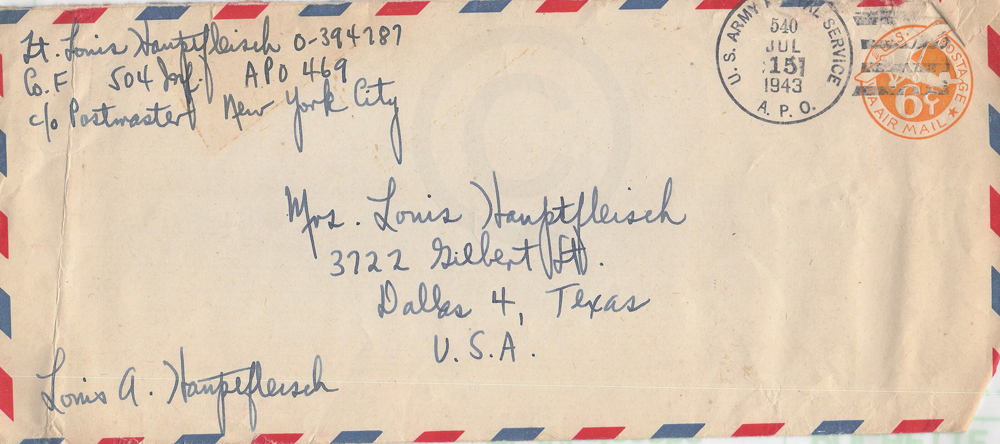 Lt. Louis Hauptfleisch O-394787
Co. F 504 Inf. APO 469
c/o Postmaster New York City
U.S. ARMY POSTAL SERVICE
540
JUL
15
1943
A.P.O.
U.S. POSTAGE
6¢
VIA AIR MAIL
Mrs. Louis Hauptfleisch
3722 Gilbert St.
Dallas 4, Texas
U.S.A.
Louis A. Hauptfleisch